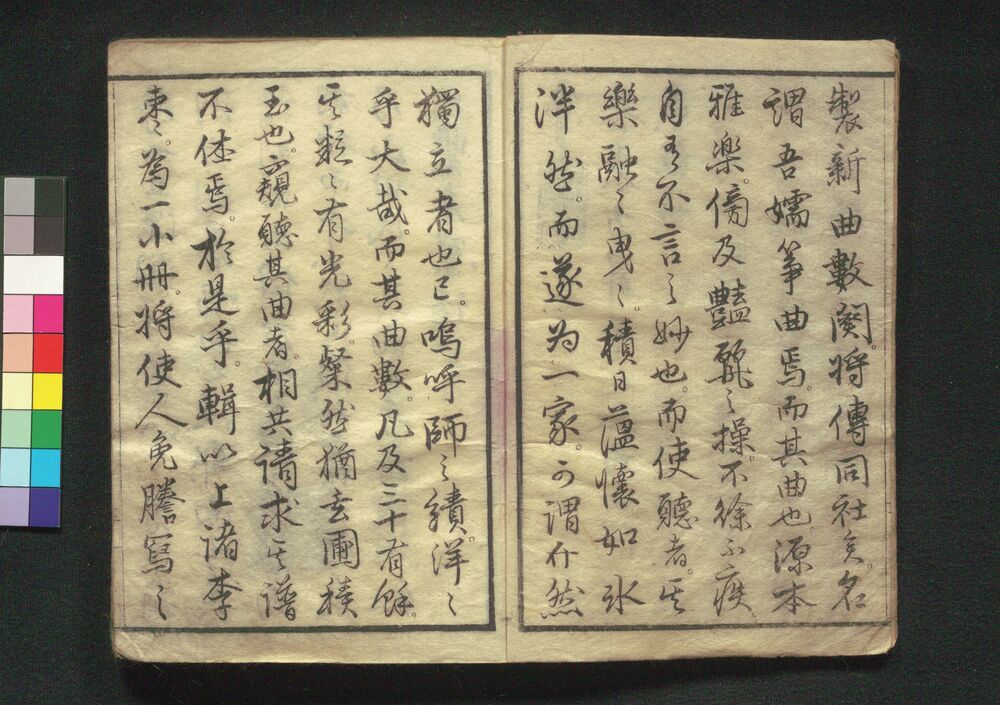 製新曲數闋。将傳同社矣。名
謂吾嬬箏曲焉。而其曲也。源本
雅樂。傍及艶麗之操。不徐不疾。
自有不言之妙也。而使聽者。其
樂融〻曳〻。積日蕰懷如氷
泮然。而遂为一家。可謂介然
獨立者也已。嗚呼師之績。洋〻
乎大哉。而其曲數。凡及三十有餘。
其粒〻有光彩。粲然猶玄圃積
玉也。窺聽其曲者。相共請求其譜
不休焉。於是乎。輯以上諸李
棗。為一小册。将使人免謄寫之